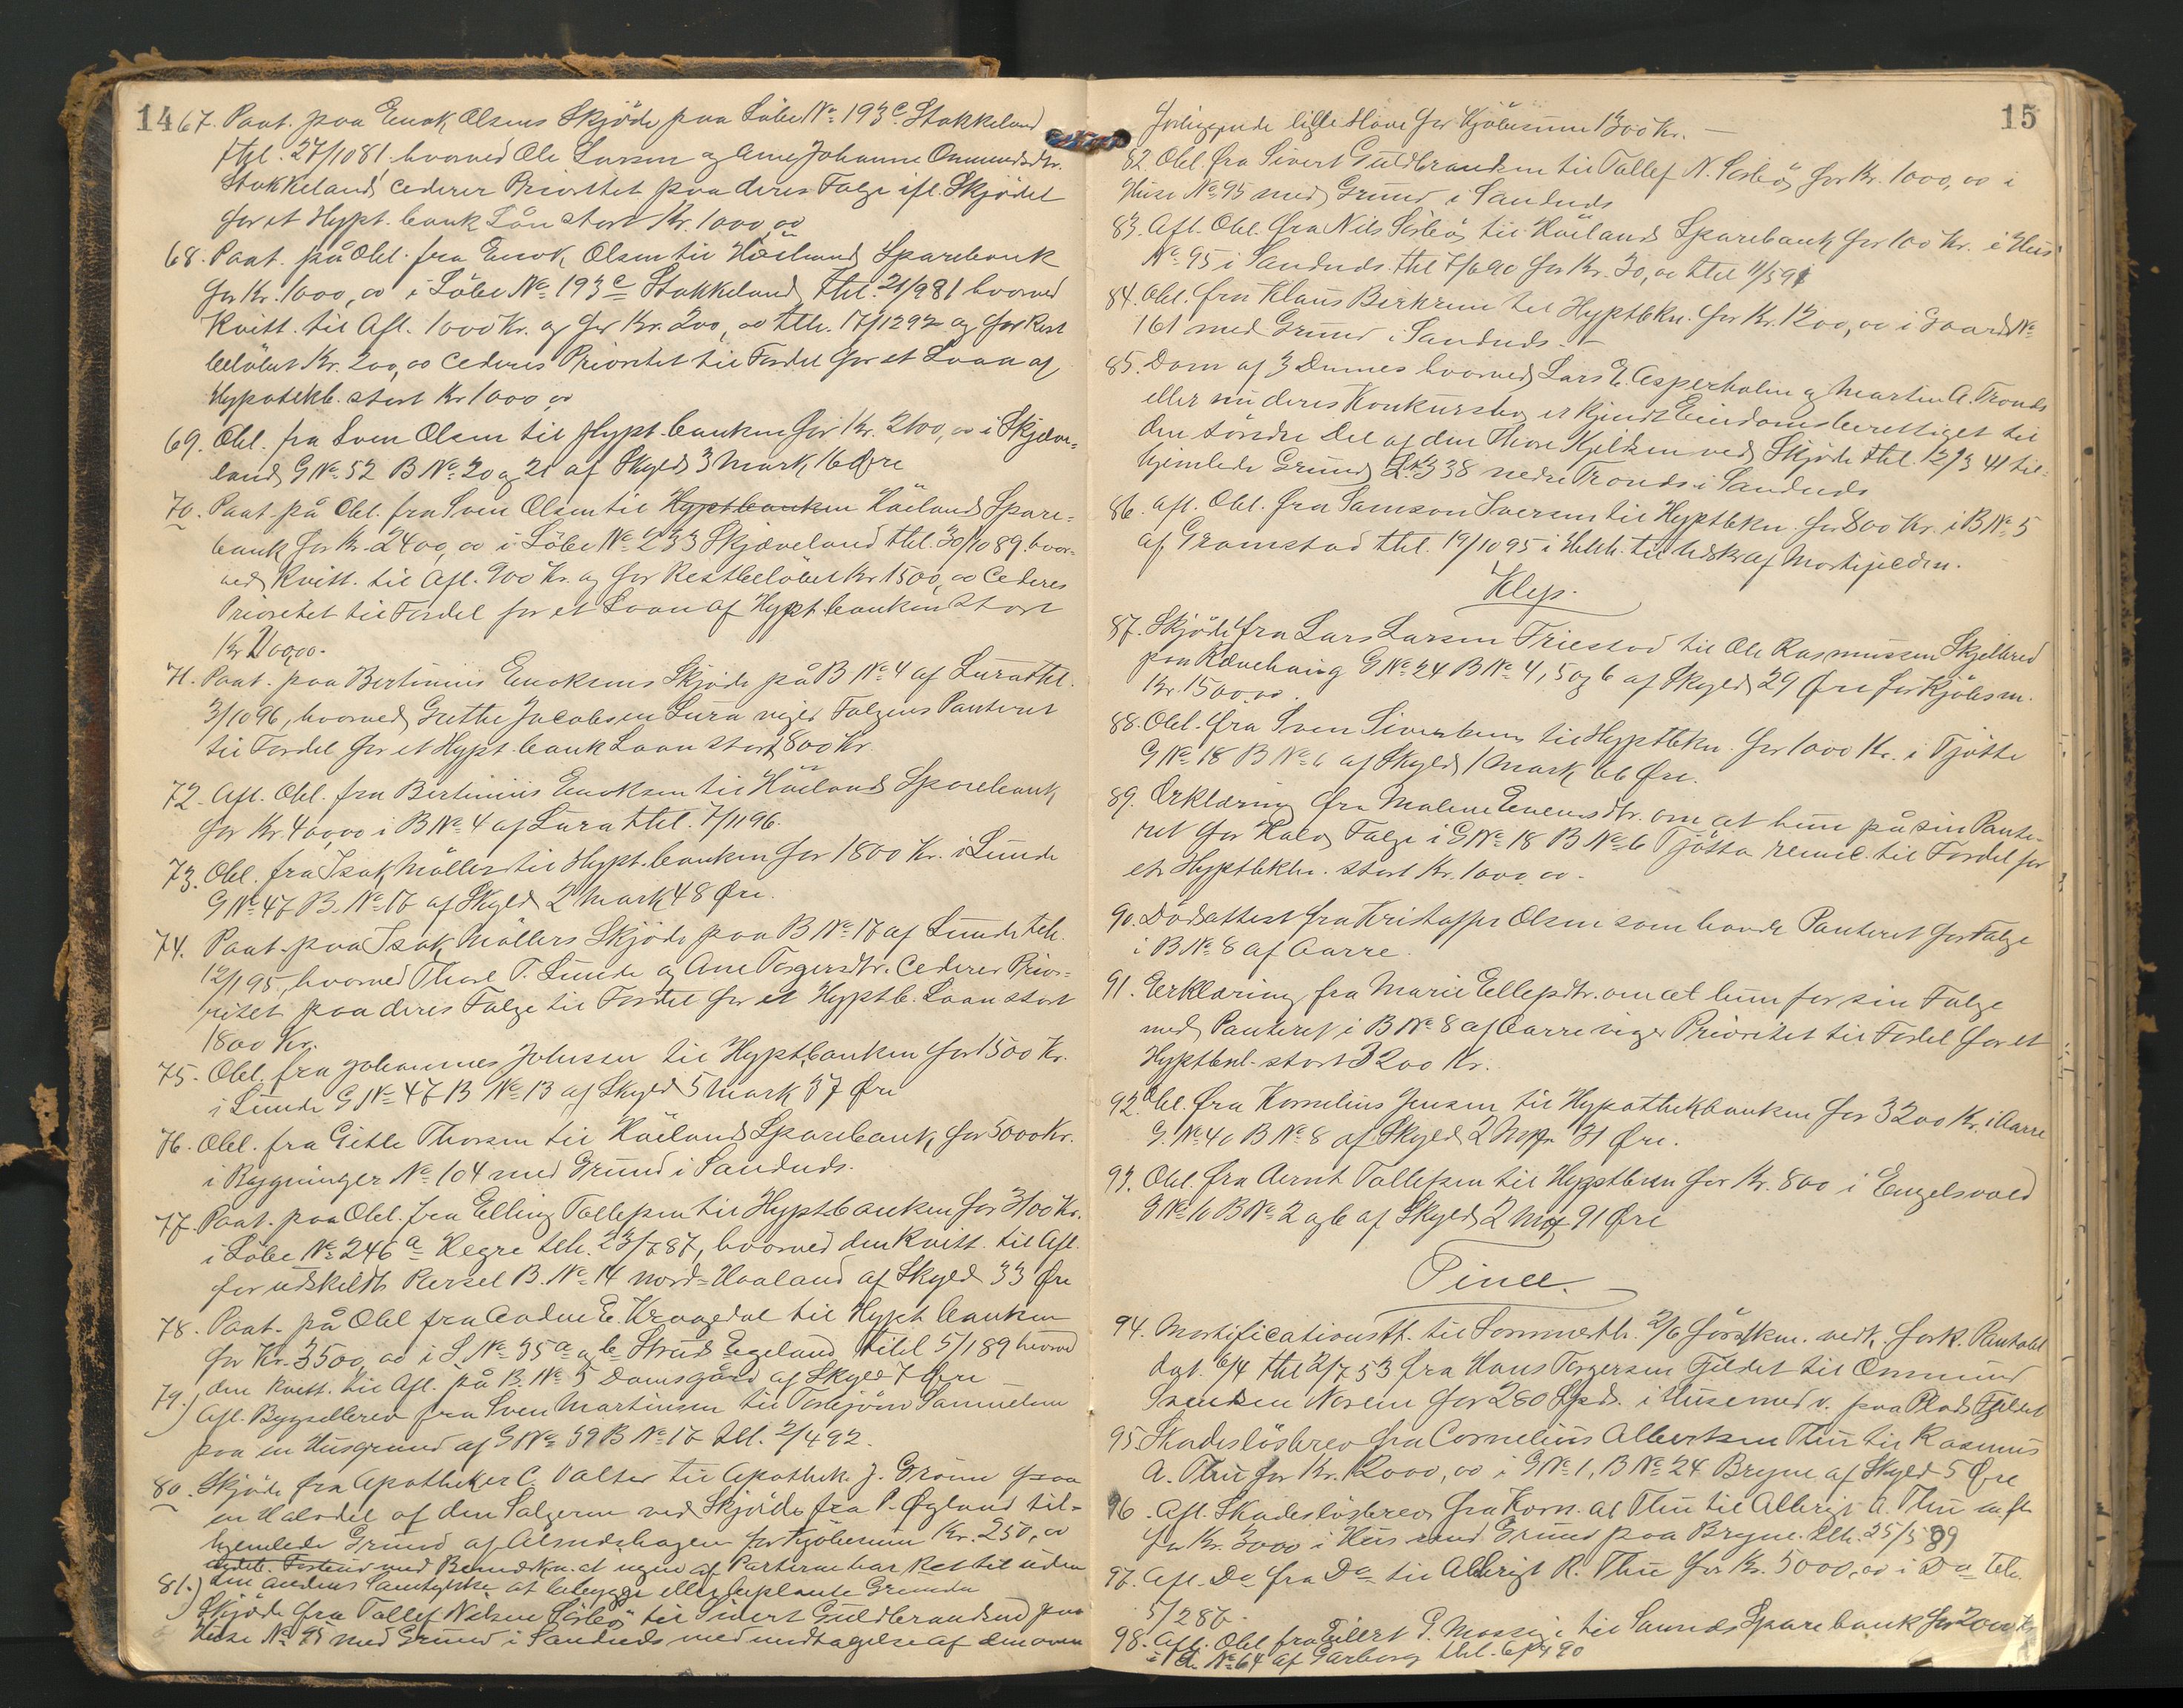 14
67. Paat. paa Enok Olsens Skjöde paa Löbe No 193c Stokkeland
thl. 27/10 81. hvorved Ole Larsen og Ane Johanne Ommundsdtr.
Stokkeland cederer Prioritet paa deres Folge ifl. Skjödet
for et Hypt. bank Lån stort Kr. 1000,00
68. Paat. på Obl. fra Enok Olsen til Höilands Sparebank
for Kr. 1000,00 i Löbe No 193c Stokkeland, thl. 21/9 81 hvorved
Kvitt. til Afl. 1000 Kr. og for Kr. 200,00 thl. 17/12 92 og for Rest
belöbet Kr. 200,00 cederes Prioritet til Fordel for et Laan af
Hypothekb. stort Kr 1000,00
69. Obl. fra Sven Olsen til Hypt. banken for Kr. 2100,00 i Skjæve-
land G No 52 B No 20 og 21 af Skyld 3 Mark 16 Øre
70. Paat. på Obl. fra Sven Olsen til Hyptbanken Höilands Spare-
bank for Kr. 2400,00 i Löbe No 233 Skjæveland thl. 30/10 89. hvor-
ved Kvitt. til Afl. 900 Kr. og for Restbelöbet Kr 1500,00 cederes
Prioritet til Fordel for et Laan af Hypt. banken stort
Kr 2100,00.
71. Paat. paa Bertinius Enoksens Skjöde på B No 4 af Lura thl.
3/10 96, hvorved Grethe Jacobsen Lura viger Folgens Panteret
til Fordel for et Hypt. bank Laan stort 800 Kr.
72. Afl. Obl. fra Bertinius Enoksen til Höilands Sparebank
for Kr. 400,00 i B No 4 af Lura thl. 7/11 96.
73. Obl. fra Isak Möller til Hypt. banken for 1800 Kr. i Lunde
G No 47 B. No 17 af Skyld 2 Mark 48 Øre.
74. Paat. paa Isak Möllers Skjöde paa B No 17 af Lunde thl.
12/1 95, hvorved Thore T. Lunde og Ane Torgersdtr. Cederer Prior-
itet paa deres Folge til Fordel for et Hyptb. Laan stort
1800 Kr.
75. Obl. fra Johannes Johnsen til Hyptbanken for 1500 Kr.
i Lunde G No 47 B No 13 af Skyld 5 Mark 37 Øre
76. Obl. fra Gitle Thorsen til Höilands Sparebank for 5000 Kr.
i Bygninger No 104 med Grund i Sandnds.
77. Paat. paa Obl. fra Elling Tollefsen til Hyptbanken for 3100 Kr.
i Löbe No 246a Hegre thl. 23/7 87, hvorved den Kvitt. til Afl.
for udskildt Parsel B. No 14 Nord-Haaland af Skyld 33 Øre
78. Paat. på Obl fra Aadne E. Kraagedal til Hypt. banken
for Kr. 3500,00 i L No 35a og b Struds Egeland thl 5/1 89 hvorved
den kvitt. til Afl. på B. No 5 Damsgård af Skyld 7 Øre
79. Afl. Bygselbrev fra Sven Martinsen til Torbjörn Samuelsen
paa en Husgrund af G No 59 B No 17 thl. 2/4 92.
80. Skjöde fra Apotheker C. Valter til Apothek. J. Grönn paa
en Halvdel af den Sælgeren ved Skjöde fra P. Øgland til-
hjemlede Grund af Alsnedshagen for Kjöbesum Kr. 250,00
med Bemærkn. at ingen af Parterne har Ret til uden
den andens Samtykke at bebygge eller beplante Grunden
81. Skjöde fra Tollef Nilsen Sörbö til Sivert Guldbrandsen paa
Huse No 95 med Grund i Sandnds med undtagelse af den oven
15
forliggende lille Have for Kjöbesum 1300 Kr. —
82. Obl. fra Sivert Guldbrandsen til Tollef N. Sörbö for Kr. 1000,00 i
Huse No 95 med Grund i Sandnds
83. Afl. Obl. fra Nils Sörbö til Höilands Sparebank for 100 Kr. i Hus
No 95 i Sandnds. thl 7/6 90 for Kr. 30,00 thl 11/5 91
84. Obl. fra Klaus Birkrem til Hyptbkn. for Kr. 1200,00 i Gaard No
161 med Grund i Sandnds. —
85. Dom af 3 Dennes hvorved Lars E. Asperholm og Martin A. Tronds
eller nu deres Konkursbo er kjendt Eiendomsberettiget til
den söndre Del af den Thore Kjeldsen ved Skjöde thl. 12/3 41 til-
hjemlede Grund L No 338 nedre Tronds i Sandnds
86. Afl. Obl. fra Samson Iversen til Hyptbkn. for 800 Kr. i B No 5
af Gramstad thl. 19/10 95 i Hthl. til Udsk. af Mostejeden.
Klep.
87. Skjöde fra Lars Larsen Friestad til Ole Rasmussen Skjelbred
paa Rævehaug G No 24 B No 4, 5 og 6 af Skyld 29 Øre for Kjöbsm.
Kr. 1500,00.
88. Obl. fra Sven Sivertsen til Hyptbkn. for 1000 Kr. i Tjötte
G No 18 B No 6 af Skyld 1 Mark 66 Øre.
89. Erklæring fra Malene Evensdtr. om at hun på sin Pante-
ret for Kaar og Folge i G No 18 B No 6 Tjötta til Fordel for
et Hyptbkln. stort Kr. 1000,00.
90. Dödsattest fra Kristoffer Olsen som havde Panteret for Folge
i B No 8 af Aarre.
91. Erklæring fra Marie Ellefsdtr. om at hun for sin Folge
med Panteret i B No 8 af Aarre viger Prioritet til Fordel for et
Hyptbnl. stort 3200 Kr.
92. Obl. fra Kornelius Jensen til Hypothekbanken for 3200 Kr. i Aarre
G. No 40 B No 8 af Skyld 2 Mrk 31 Øre.
93. Obl. fra Aernt Tollefsen til Hyptbken for Kr. 800 i Engelsvold
G No 10 B No 2 og 6 af Skyld 2 Mrk 91 Øre
Time.
94. Mortificationstl. til Sommerth. 2/6 först km. vedk. fork. Pantobl
dat. 6/4 thl 2/7 53 fra Hans Torgersen Fjildet til Ommund
Svendsen Norem for 280 Spd. i Huse med v. paa Plads Fjildet
95. Skadeslösbrev fra Cornelius Albertsen Thu til Rasmus
A. Thu for Kr. 12000,00 i G No 1, B No 24 Bryne af Skyld 5 Øre
96. Afl. Skadeslösbrev fra Korn. Al Thu til Albrigt A. Thu m. fl.
for Kr. 3000 i Hus med Grund paa Bryne. thl. 25/5 89
97. Afl. Do fra Do til Albrigt R. Thu for Kr. 5000,00 i Do thl.
5/2 87.
98. Afl. Obl. fra Eilert P. Mossige til Saunds Sparebank for 2000 Kr
i No 64 af Garborg thl. 90